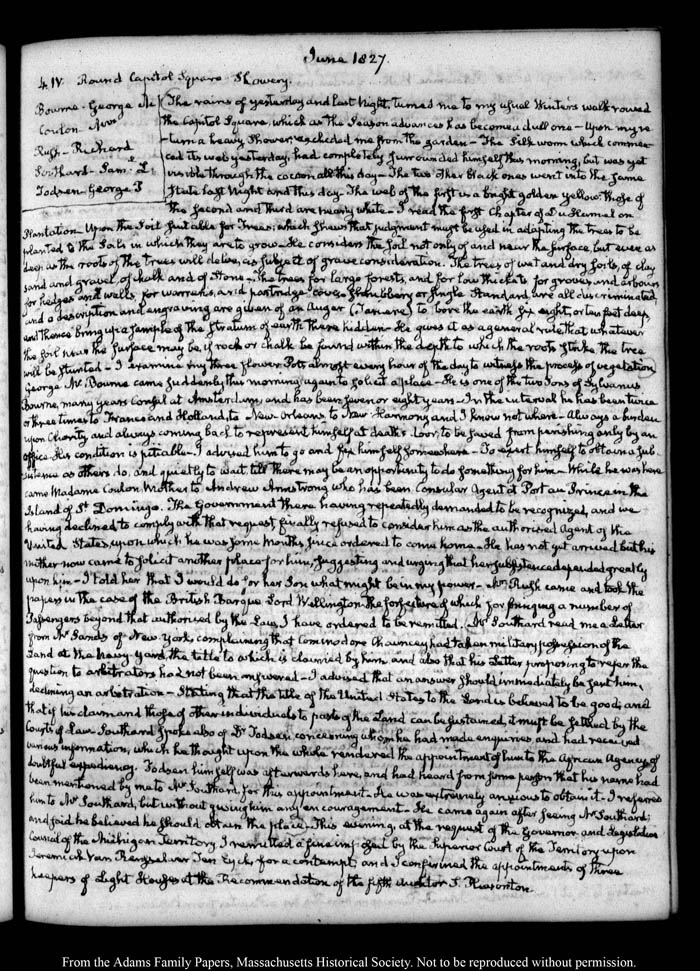 June 1827.
4. IV. Round Capitol Square. Showery.
Bourne - George Mc
Coulon - Mrs
Rush - Richard
Southard - Sam. L.
Todsen - George P
The rains of yesterday and last Night, turned me to my usual Winters walk round
the Capitol Square, which as the Season advances has become a dull one - Upon my re-
-turn a heavy Shower, excluded me from the garden - The Silk worm which commen-
ced its web yesterday, had completely surrounded himself this morning, but was yet
visible through the cocoon all this day - The two other black ones went into the same
State last Night and this day. The web of the first is a bright golden yellow; those of
the second and third are nearly white - I read the first Chapter of Du Hamel on
Plantation Upon the Soil suitable for Trees; which shews that judgment must be used in adapting the trees to be
planted to the Soils in which they are to grow - He considers the soil not only of and near the surface, but even as
deep as the roots of the trees will delve, as subject of grave consideration. The trees of wet and dry soils, of clay
sand and gravel, of chalk and of stone - The trees for large forests, and for low thickets for groves and arbours
for hedges and walls, for warrens, and partridge-cover - Shrubbery or single Standard, are all discriminated,
and a description and engraving are given of an Auger (Tariere) to bore the earth six, eight, or ten feet deep,
and thence bring up a sample of the stratum of earth there hidden - He gives it as a general rule that whatever
the soil near the surface may be, if rock or chalk be found within the depth to which the roots strike the tree
will be stunted - I examine my three flower Pots almost every hour of the day to witness the process of vegetation
George Mc Bourne came suddenly this morning again to solicit a place - He is one of the two Sons of Sylvanus
Bourne, many years Consul at Amsterdam, and has been seven or eight years - In the interval he has been twice
or three times to France and Holland, to New Orleans to New Harmony and I know not where - Always a burden
upon Charity and always coming back to represent himself at death's door, to be saved from perishing only by an
office - His condition is pitiable - I advised him to go and fix himself somewhere - To exert himself to obtain a sub-
sistence as others do, and quietly to wait till there may be an opportunity to do something for him - While he was here
came Madame Coulon Mother to Andrew Armstrong who has been Consular Agent at Port au Prince in the
Island of St. Domingo. The Government there having repeatedly demanded to be recognized, and we
having declined to comply with that request, finally refused to consider him as the authorised Agent of the
United States, upon which he was some months since ordered to come home - He has not yet arrived but his
mother now came to solicit another place for him, suggesting and urging that her subsistence depended greatly
upon him - I told her that I would do for her Son what might be in my power - Mr Rush came and took the
papers in the case of the British Barque Lord Wellington the forfeiture of which for bringing a number of
Passengers beyond that authorised by the Law, I have ordered to be remitted. Mr Southard read me a Letter
from Mr Sands of New York, complaining that Commodore Chauncey had taken military possession of the
Land at the Navy Yard, the title to which is claimed by him, and also that his Letter proposing to refer the
question to arbitrators had not been answered - I advised that an answer should immediately be sent him,
declining an arbitration - Stating that the title of the United States to the Land is believed to be good; and
that if his claim and those of other individuals to parts of the Land can be sustained, it must be settled by the
Courts of Law. Southard spoke also of Dr Todsen concerning whom he had made enquiries and had received
various information, which he thought upon the whole rendered the appointment of him to the African Agency of
doubtful expediency. Todsen himself was afterwards here, and had heard from some person that his name had
been mentioned by me to Mr Southard for this appointment. He was extremely anxious to obtain it - I referred
him to Mr Southard, but without giving him any encouragement - He came again after seeing Mr Southard;
and said he believed he should obtain the place. This evening, at the request of the Governor and Legislative
Council of the Michigan Territory I remitted a fine imposed by the Superior Court of the Territory upon
Jeremiah Van Renselaer Ten Eyck, for a contempt; and I confirmed the appointments of three
keepers of Light Houses at the Recommendation of the fifth Auditor S. Pleasonton.
From the Adams Family Papers, Massachusetts Historical Society. Not to be reproduced without permission.